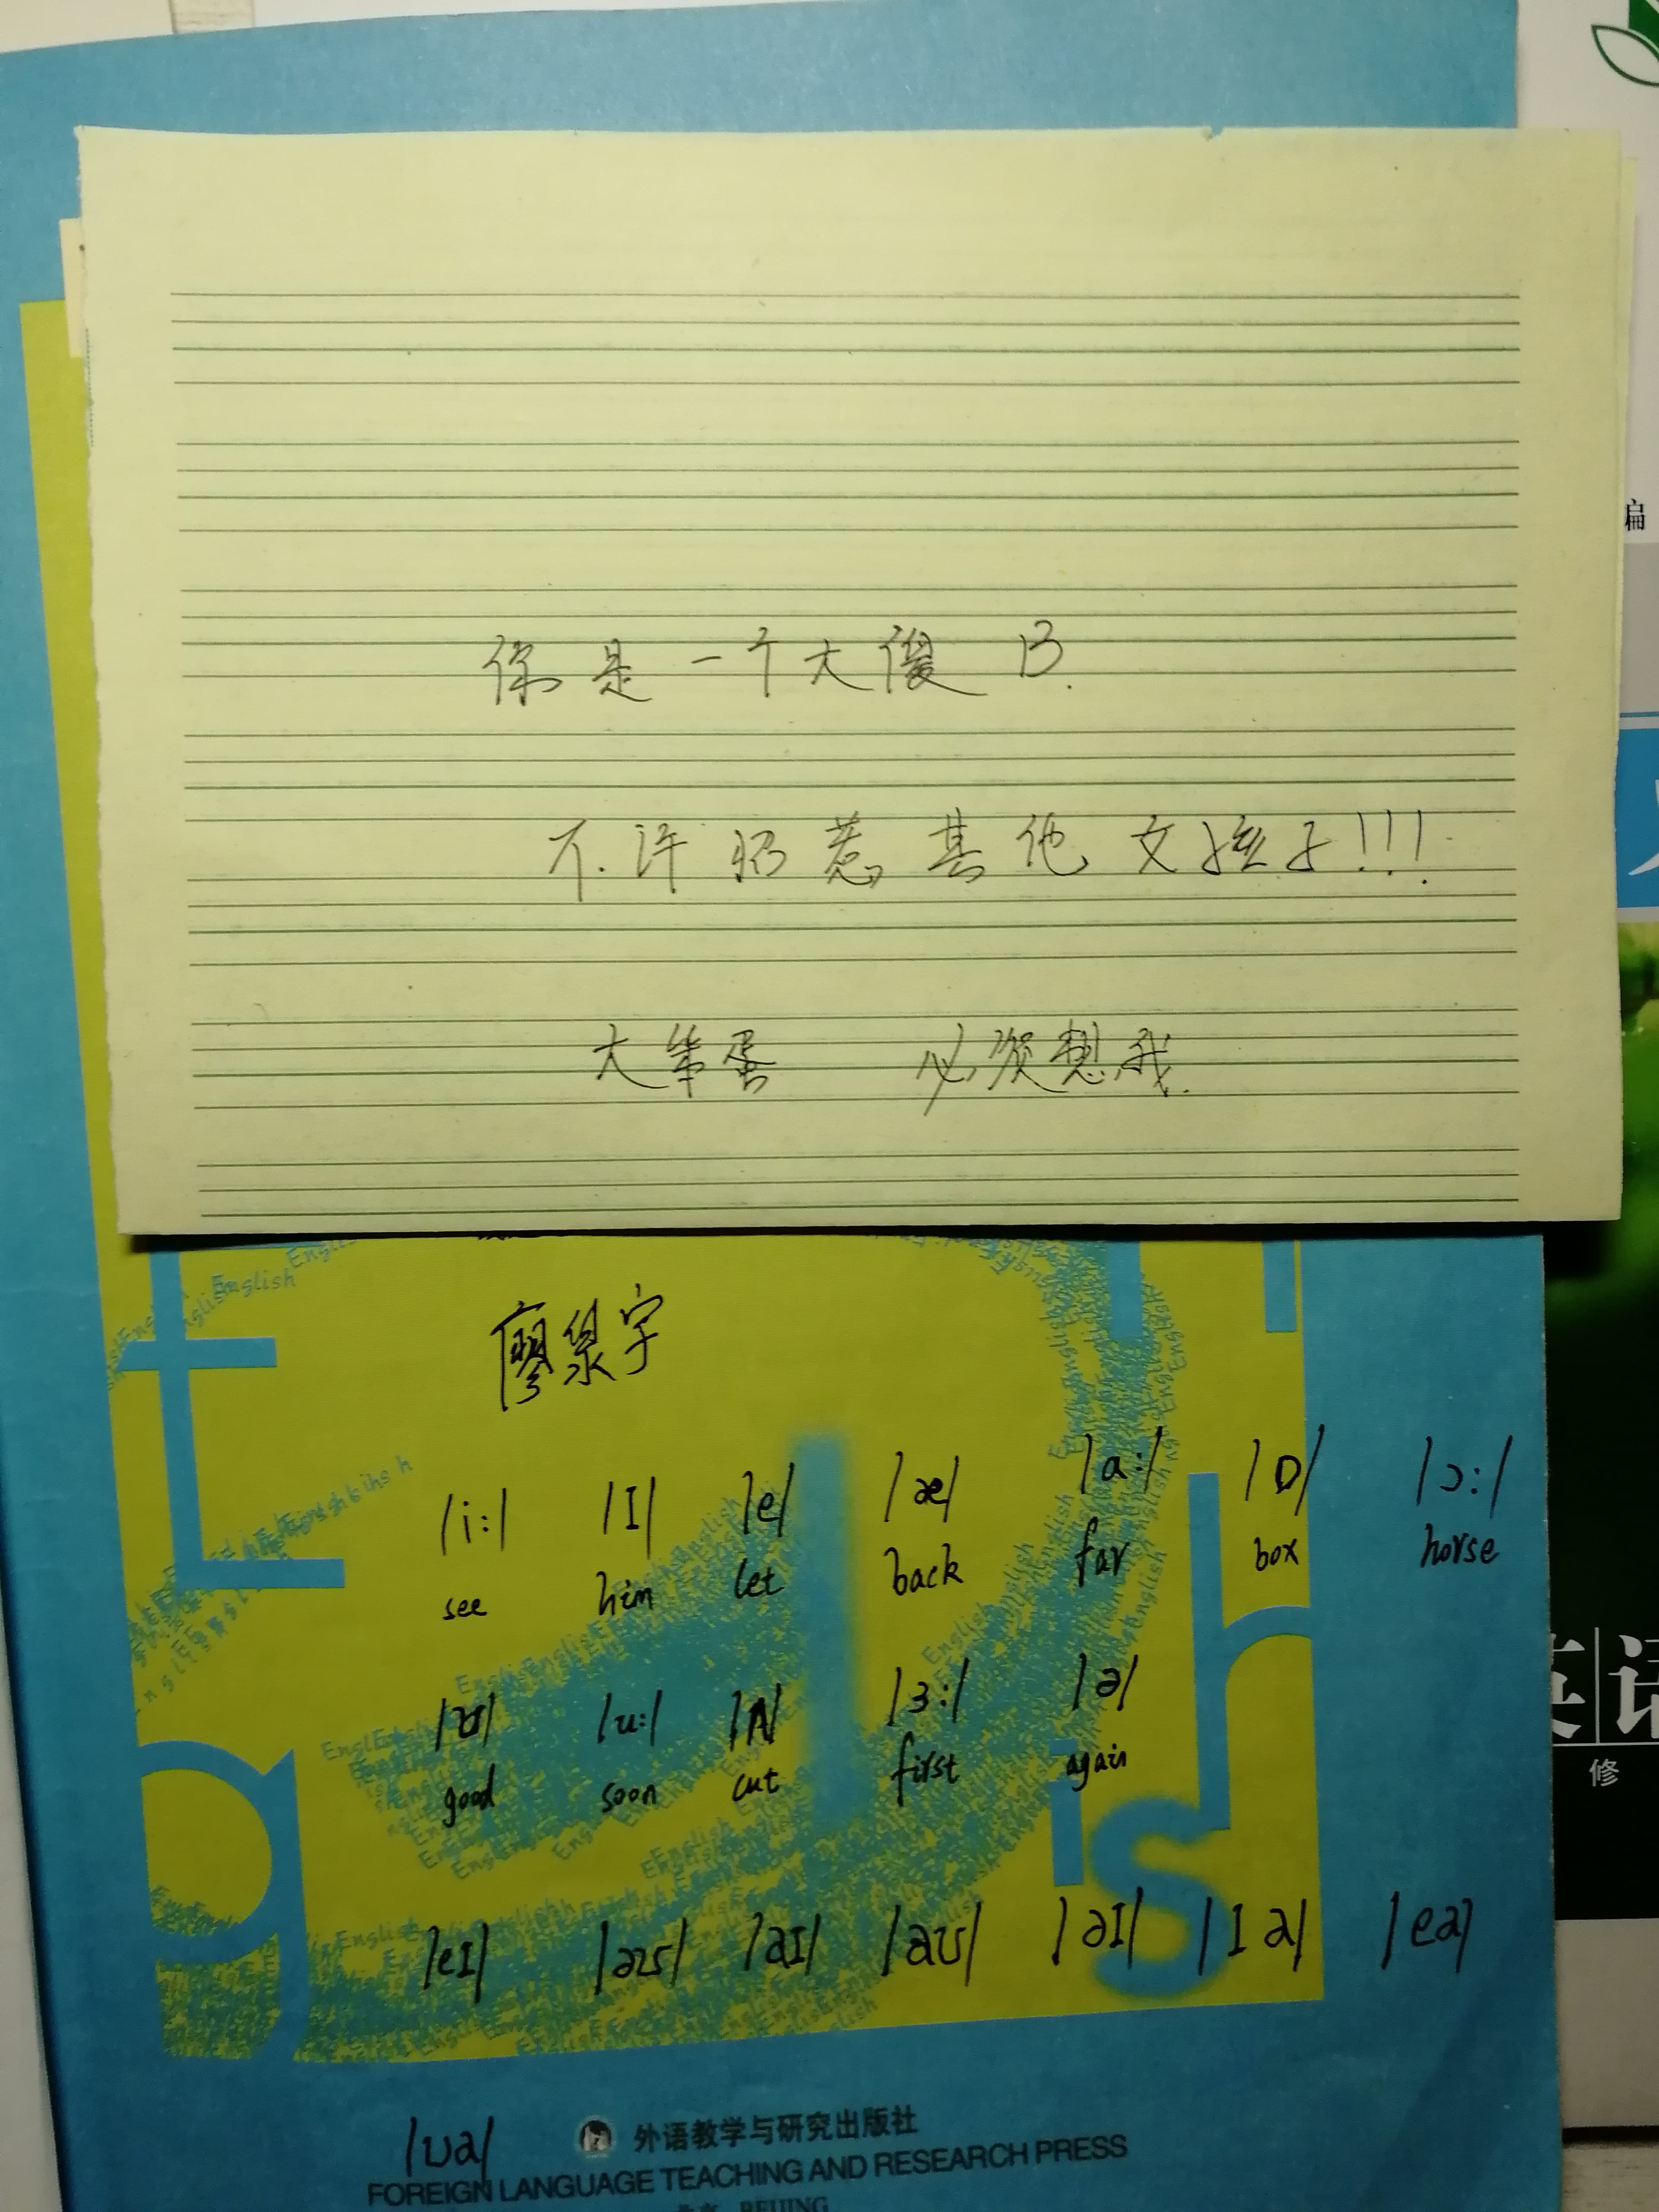 你是一个大傻B.
不许招惹其他女孩子!!!
大笨蛋 必须想我.
廖泉宇
/i:/ /I/ /e/ /æ/ /a:/ /ɒ/ /ɔ:/
see him let back far box horse
/ʊ/ /u:/ /ʌ/ /ɜ:/ /ə/
good soon cut first again
/eI/ /əʊ/ /aI/ /aʊ/ /əI/ /Iə/ /eə/
/ʊə/
外语教学与研究出版社
FOREIGN LANGUAGE TEACHING AND RESEARCH PRESS
北京 BEIJING
编
英语
修